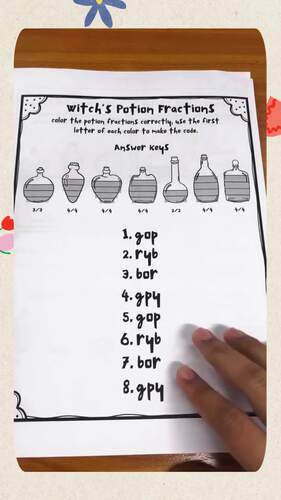 Witch's Potion Fractions
Color the potion fractions correctly, use the first
letter of each color to make the code.
Answer Keys
3/3 4/4 4/4 4/4 2/2 4/4 4/4
1. gop
2. ryb
3. bor
4. gpy
5. gop
6. ryb
7. bor
8. gpy